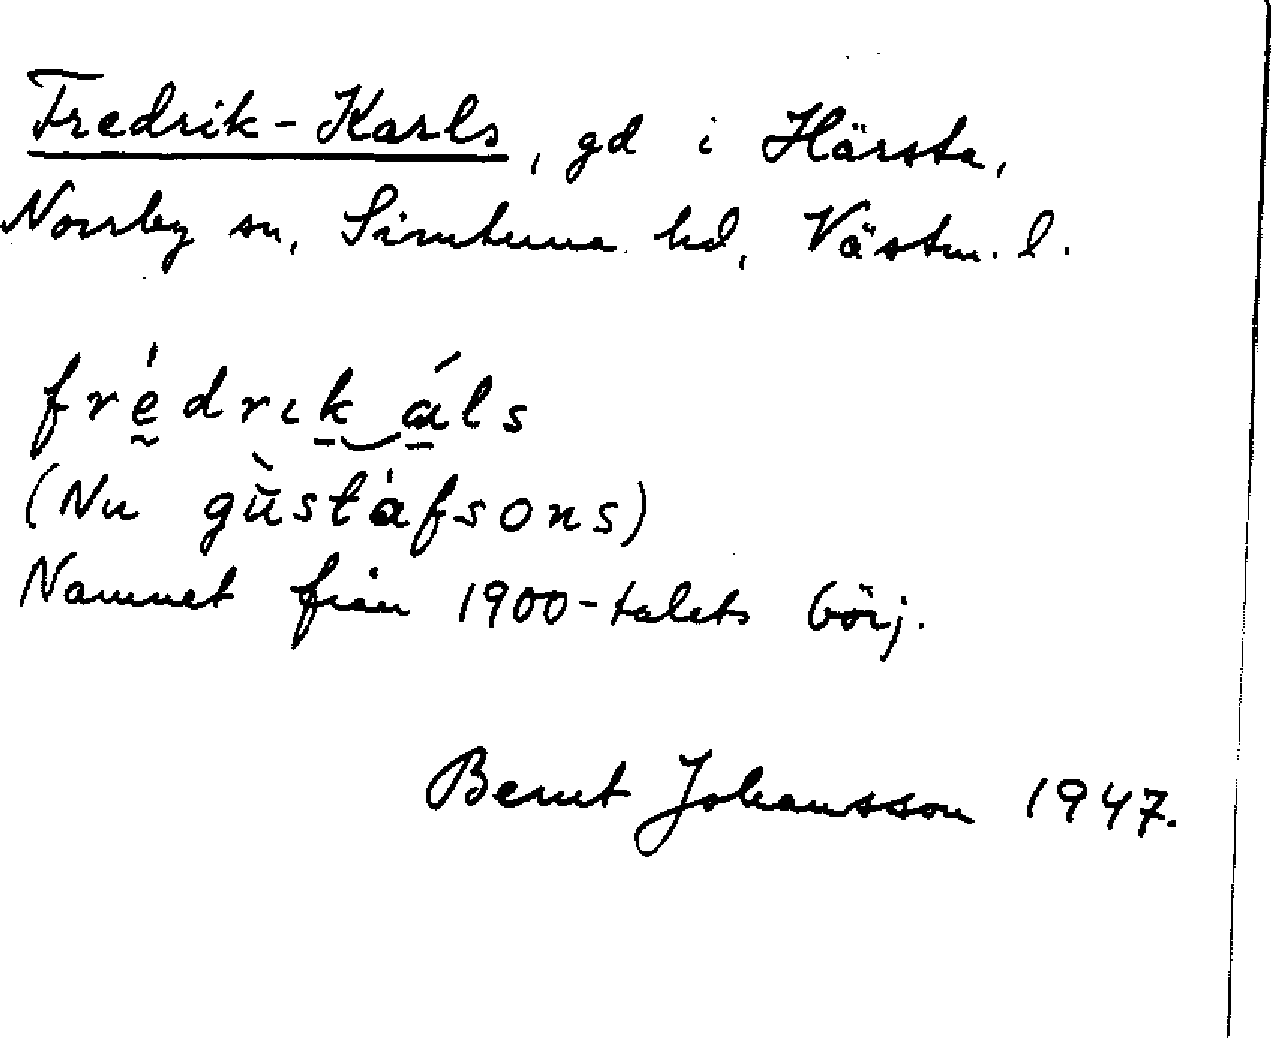 Fredrik-Karls, gd i Härsta,
Norrby sn, Simtuna hd, Västm. l.
frédrik áls
(Nu gùstáfsons)
Namnet från 1900-talets börj.
Bernt Johansson 1947.